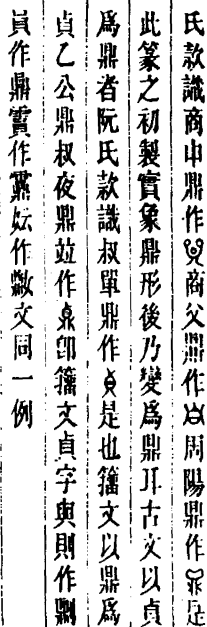 氏款識商中鼎作商父鼎作周陽鼎作是
此篆之初製實象鼎形後乃變爲鼎耳古文以貞
爲鼎者阮氏款識叔單鼎作是也籒文以鼎爲
貞乙公鼎叔夜鼎竝作鼑卽籒文貞字與則作鼎刂
員作鼎霣作妘作文同一例